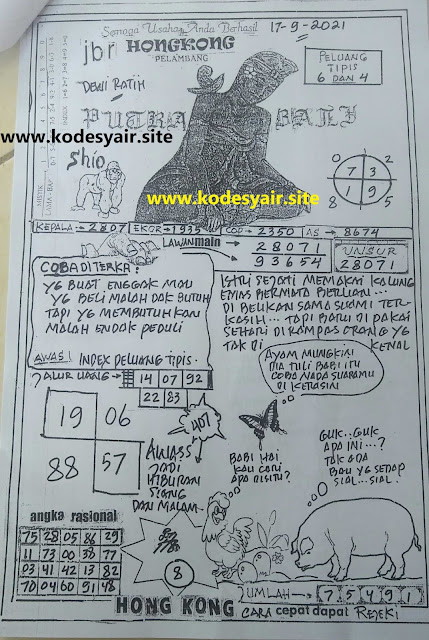 Semoga Usaha Anda Berhasil
17-9-2021
jbr HONGKONG
PELAMBANG
DEWI RATIH
PELUANG
TIPIS
6 DAN 4
PUTRA BALI
www.kodesyair.site
shio
www.kodesyair.site
0 2
7 3
1 9
8 5
KEPALA → 2807 EKOR → 1935 COP → 2350 AS → 8674
LAWAN main → 28071
93654
UNSUR
28071
COBA DI TERKA:
YG BUAT ENGGAK MAU
YG BELI MALAH GAK BUTUH
TAPI YG MEMBUTUHKAN
MALAH ENDAK PEDULI
ISTRI SEJATI MEMAKAI KALUNG
EMAS BERMATA BERLIAN...
DI BELIKAN SAMA SUAMI TER-
KASIH... TAPI BARU DI PAKAI
SEHARI DI RAMPAS ORANG YG
TAK DI KENAL
AWAS! INDEX PELUANG TIPIS.
JALUR UANG →
14 07 92
22 83
AYAM MUNGKIN
DIA TULI BABI ITU
COBA NADA SUARAMU
DI KERASIN
19 06
88 57
407
AWASS
JADI
HIBURAN
SIANG
DAN MALAM.
BABI HAI
KAU CARI
APA DISITU?
GUK..GUK
ADA INI...?
TAK ADA
BAU YG SEDAP
SIAL...SIAL.
angka rasional
75 28 05 86 29
11 73 00 38 77
03 41 42 13 82
70 04 60 91 48
8
JUMLAH → 7 5 4 9 1
HONG KONG CARA cepat dapat REJEKI